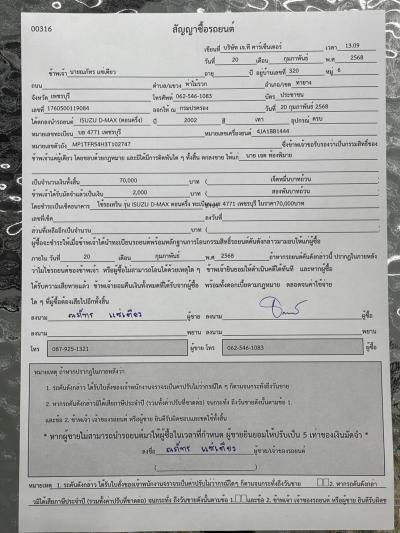 00316
สัญญาซื้อรถยนต์
เขียนที่ บริษัท เจ.ที คาร์เซ็นเตอร์ เวลา 13.09
วันที่ 20 เดือน กุมภาพันธ์ พ.ศ 2568
ข้าพเจ้า นายณภัทร แซ่เตียว อายุ ปี อยู่บ้านเลขที่ 320 หมู่ 6
ถนน ตำบล/แขวง ท่าไม้รวก อำเภอ/เขต ท่ายาง
จังหวัด เพชรบุรี โทรศัพท์ 062-546-1083 บัตร ประชาชน
เลขที่ 1760500119084 ออกให้ ณ กรมปกครอง วันที่ 20 กุมภาพันธ์ 2568
ได้ตกลงขายรถยนต์ ISUZU D-MAX (ตอนครึ่ง) ปี 2002 สี เทา อุปกรณ์ ครบ
หมายเลขทะเบียน บย 4771 เพชรบุรี หมายเลขเครื่องยนต์ 4JA1BB1444
หมายเลขตัวถัง MP1TFR54H3T102747 ซึ่งข้าพเจ้าขอรับรองว่าเป็นกรรมสิทธิ์ของ
ข้าพเจ้าแต่ผู้เดียว โดยชอบด้วยกฎหมาย และมิได้มีภาระติดพันใด ๆ ทั้งสิ้น ตกลงขาย ให้แก่ นาย เจต ทองพิมาย
เป็นจำนวนเงินทั้งสิ้น 70,000 บาท ( เจ็ดหมื่นบาทถ้วน )
ข้าพเจ้าได้รับมัดจำแล้วเป็นเงิน 2,000 บาท ( สองพันบาทถ้วน )
โดยชำระเป็นเช็คธนาคาร ใช้รถเทริน รุ่น ISUZU D-MAX ตอนครึ่ง ทะเบียน บย 4771 เพชรบุรี ในราคา70,000บาท
เลขที่เช็ค ลงวันที่
ส่วนที่เหลืออีกเป็นจำนวน บาท ( )
ผู้ซื้อจะชำระให้เมื่อข้าพเจ้าได้นำทะเบียนรถยนต์พร้อมหลักฐานการโอนกรรมสิทธิ์รถยนต์คันดังกล่าวมามอบให้แก่ผู้ซื้อ
ภายใน วันที่ 20 เดือน กุมภาพันธ์ พ.ศ 2568 ถ้าหากรถยนต์คันดังกล่าวนี้ ปรากฏในภายหลัง
ว่าไม่ใช่รถยนต์ของข้าพเจ้า หรือผู้ซื้อไม่สามารถโอนได้ด้วยเหตุใด ๆ ข้าพเจ้ายินยอมให้ดำเนินคดีได้ทันที และหากผู้ซื้อ
ได้รับความเสียหายแล้ว ข้าพเจ้ายอมคืนเงินทั้งหมดที่ได้รับจากผู้ซื้อ พร้อมทั้งดอกเบี้ยตามกฎหมาย ตลอดจนค่าใช้จ่าย
ใด ๆ ที่ผู้ซื้อต้องเสียไปอีกทั้งสิ้น
ลงนาม ณภัทร แซ่เตียว ผู้ขาย ลงนาม ผู้ซื้อ
ลงนาม พยาน ลงนาม พยาน
โทร 087-925-1321 ผู้ขาย โทร 062-546-1083 ผู้ซื้อ
หมายเหตุ ถ้าหากปรากฏในภายหลังว่า
1. รถคันดังกล่าว ได้รับใบสั่งของเจ้าพนักงานจราจรเป็นค่าปรับไม่ว่ากรณีใด ๆ ก็ตามจนกระทั่งถึงวันขาย
2. หากรถคันดังกล่าวมิได้เสียภาษีประจำปี (รวมทั้งค่าปรับที่ขาดต่อ) จนกระทั่ง ถึงวันขายดังนั้นตามข้อ 1.
และข้อ 2. ข้าพเจ้า เจ้าของรถยนต์ หรือผู้ขาย ยินดีรับผิดชอบและชดใช้ทั้งสิ้น
* หากผู้ขายไม่สามารถนำรถยนต์มาให้ผู้ซื้อในเวลาที่กำหนด ผู้ขายยินยอมให้ปรับเป็น 5 เท่าของเงินมัดจำ *
ลงชื่อ ณภัทร แซ่เตียว ผู้ขาย/เจ้าของรถยนต์
( )
หมายเหตุ 1. รถคันดังกล่าว ได้รับใบสั่งของเจ้าพนักงานจราจรเป็นค่าปรับไม่ว่ากรณีใดๆ ก็ตามจนกระทั่งถึงวันขาย 2. หากรถคันดังกล่า
วมิได้เสียภาษีประจำปี (รวมทั้งค่าปรับที่ขาดต่อ) จนกระทั่ง ถึงวันขายดังนั้นตามข้อ 1 และข้อ 2. ข้าพเจ้า เจ้าของรถยนต์ หรือผู้ขาย ยินดีรับผิดช